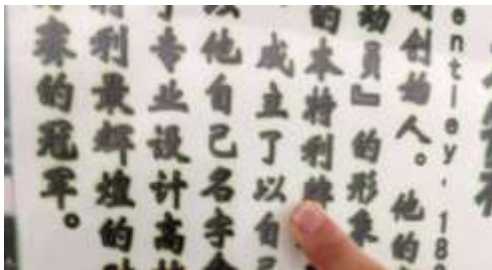 entley，18
的创始人。他的
动员』的形象
的本特利牌
成立了以自己
以他自己名字命
于专业设计高
特利最辉煌的
赛的冠军。